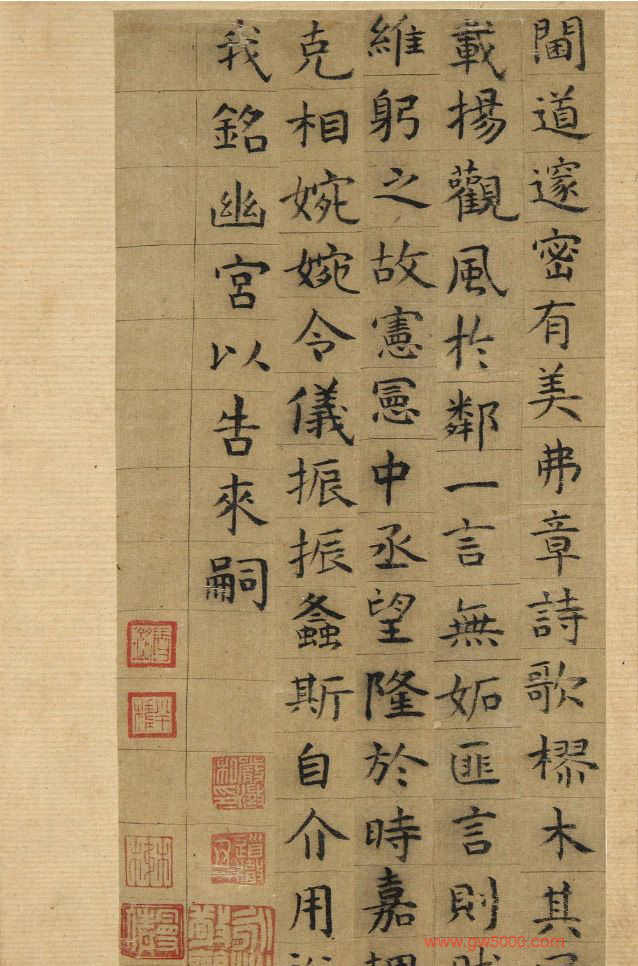 閫道邃密有美弗章詩歌樛木其
載揚觀風於鄰一言無妬匪言則
維躬之故憲憲中丞望隆於時嘉
克相婉婉令儀振振螽斯自介用
我銘幽宮以告來嗣
www.gw5000.com